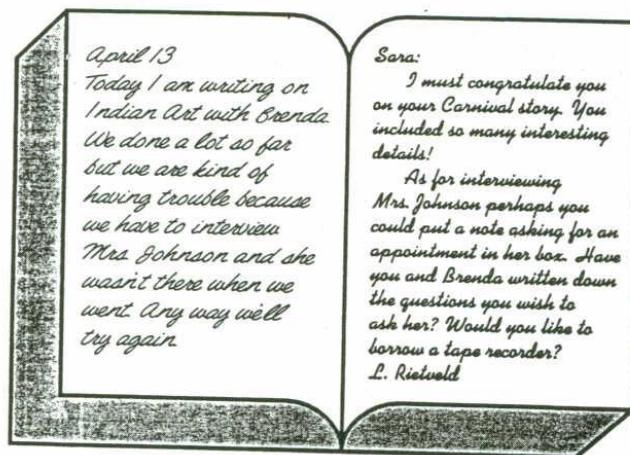 April 13
Today I am writing on
Indian Art with Brenda.
We done a lot so far
but we are kind of
having trouble because
we have to interview
Mrs. Johnson and she
wasn't there when we
went. Any way we'll
try again.
Sara:
I must congratulate you
on your Carnival story. You
included so many interesting
details!
As for interviewing
Mrs. Johnson perhaps you
could put a note asking for an
appointment in her box. Have
you and Brenda written down
the questions you wish to
ask her? Would you like to
borrow a tape recorder?
L. Rietveld